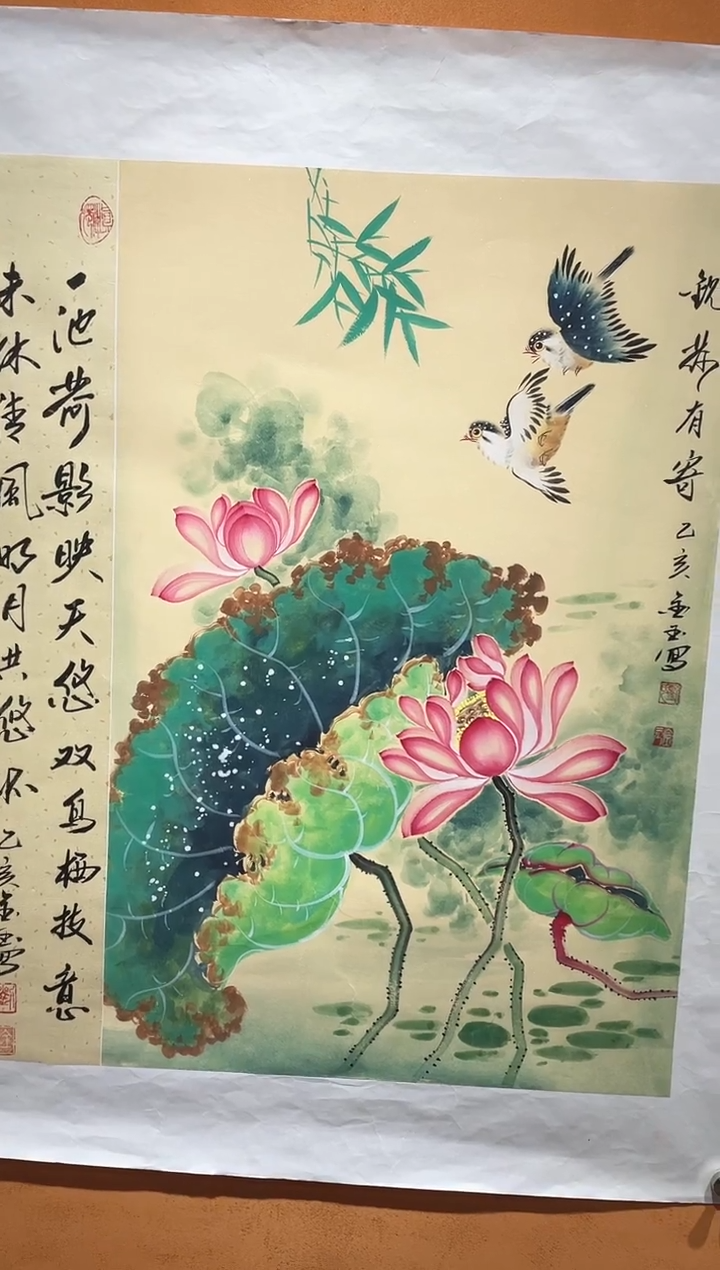 有寄 乙亥金玉寫
一池荷影映天悠双鸟栖枝意
未休清風明月共悠 乙亥金玉寫